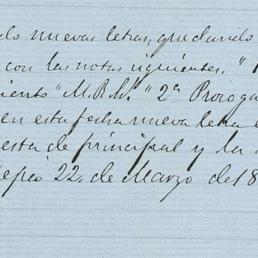 do nuevas letras, quedando
con las notas siguientes. "
miento "M.B.K." 2ª Proroga
en esta fecha nueva letra
esta de principal y la
Tepic 22, de Marzo del 8